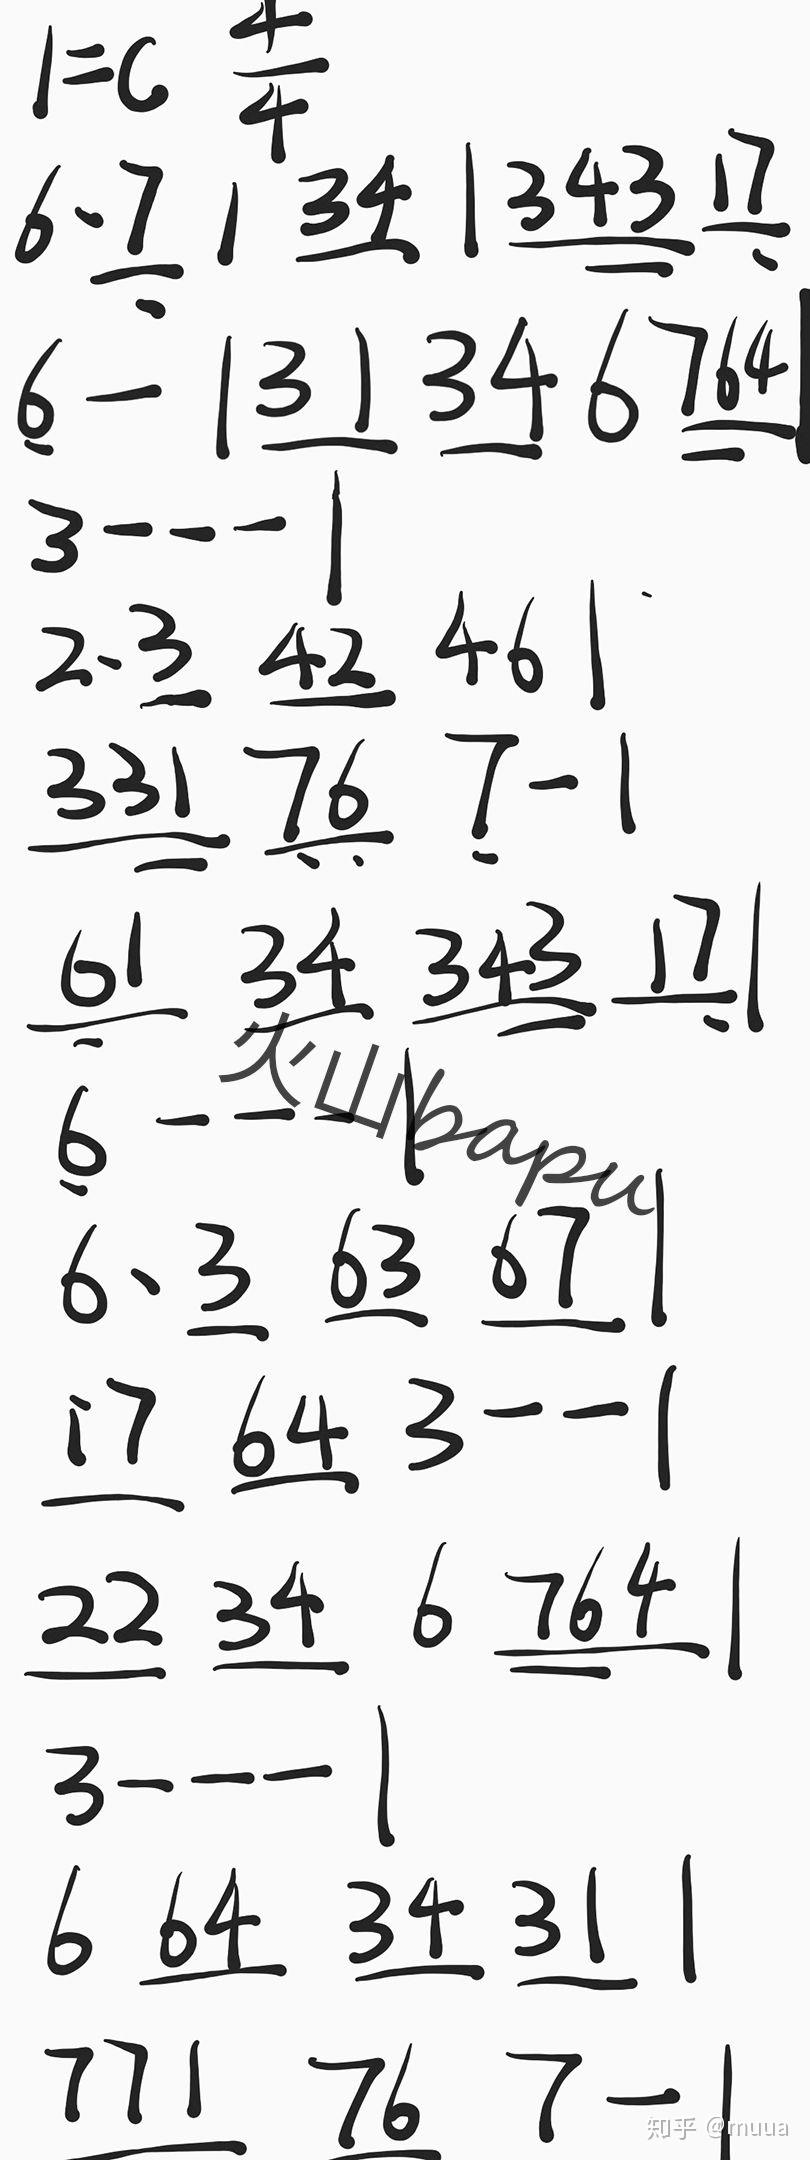 1=C 4/4
6·7 1 34 | 343 17
6 - | 31 34 6 764 |
3 - - - |
2·3 42 46 |
331 76 7 - |
61 34 343 17 |
6 - - - |
火山bapu
6·3 63 67 |
i7 64 3 - - |
22 34 6 764 |
3 - - - |
6 64 34 31 |
771 76 7 - |
知乎 @muua